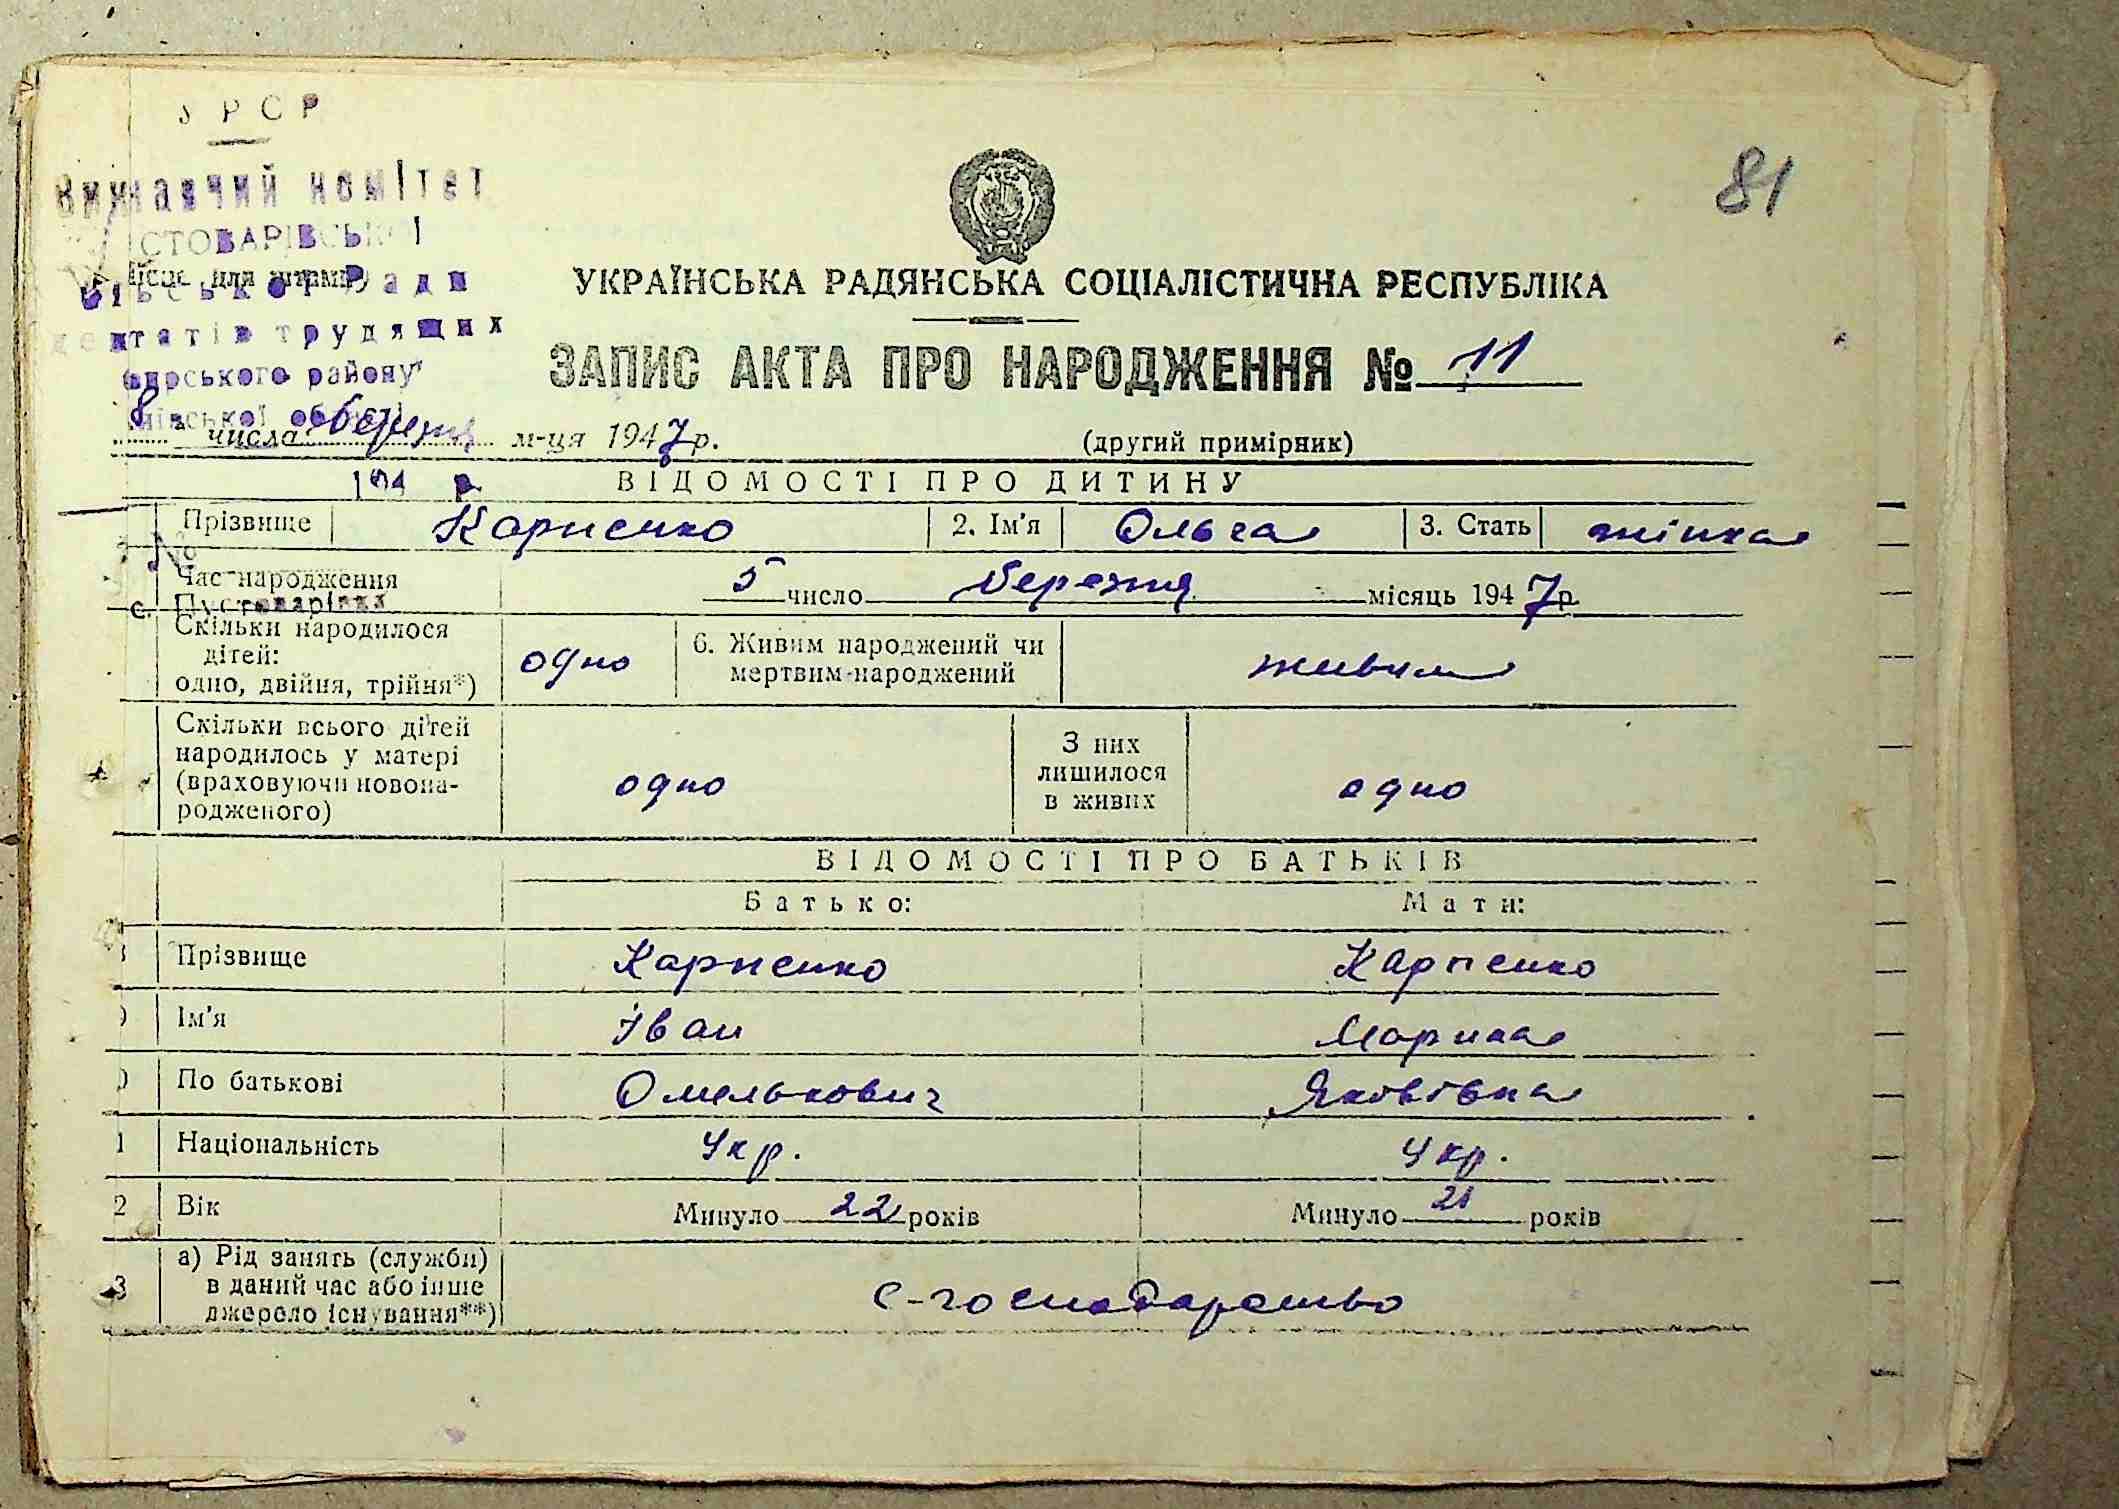 УРСР
81
Виконавчий комітет
СТОВАРІВСЬКОЇ
Місце для штампу
сільської Ради
УКРАЇНСЬКА РАДЯНСЬКА СОЦІАЛІСТИЧНА РЕСПУБЛІКА
депутатів трудящих
ЗАПИС АКТА ПРО НАРОДЖЕННЯ № 11
ирського району
ївської області
8 числа березня м-ця 1947 р.
(другий примірник)
194 р.
ВІДОМОСТІ ПРО ДИТИНУ
Прізвище Карпенко 2. Ім'я Ольга 3. Стать жінка
№
Час народження 5 число березня місяць 1947 р.
с. Пустоварівка
Скільки народилося
дітей:
одно, двійня, трійня*) одно 6. Живим народжений чи
мертвим народжений живим
Скільки всього дітей
народилось у матері
(враховуючи новона-
родженого) одно
З них
лишилося
в живих одно
ВІДОМОСТІ ПРО БАТЬКІВ
Батько: Мати:
Прізвище Карпенко Карпенко
Ім'я Іван Марина
По батькові Омелькович Яковівна
1 Національність Укр. Укр.
2 Вік Минуло 22 років Минуло 21 років
3 а) Рід занять (служби)
в даний час або інше
джерело існування**) с-господарство